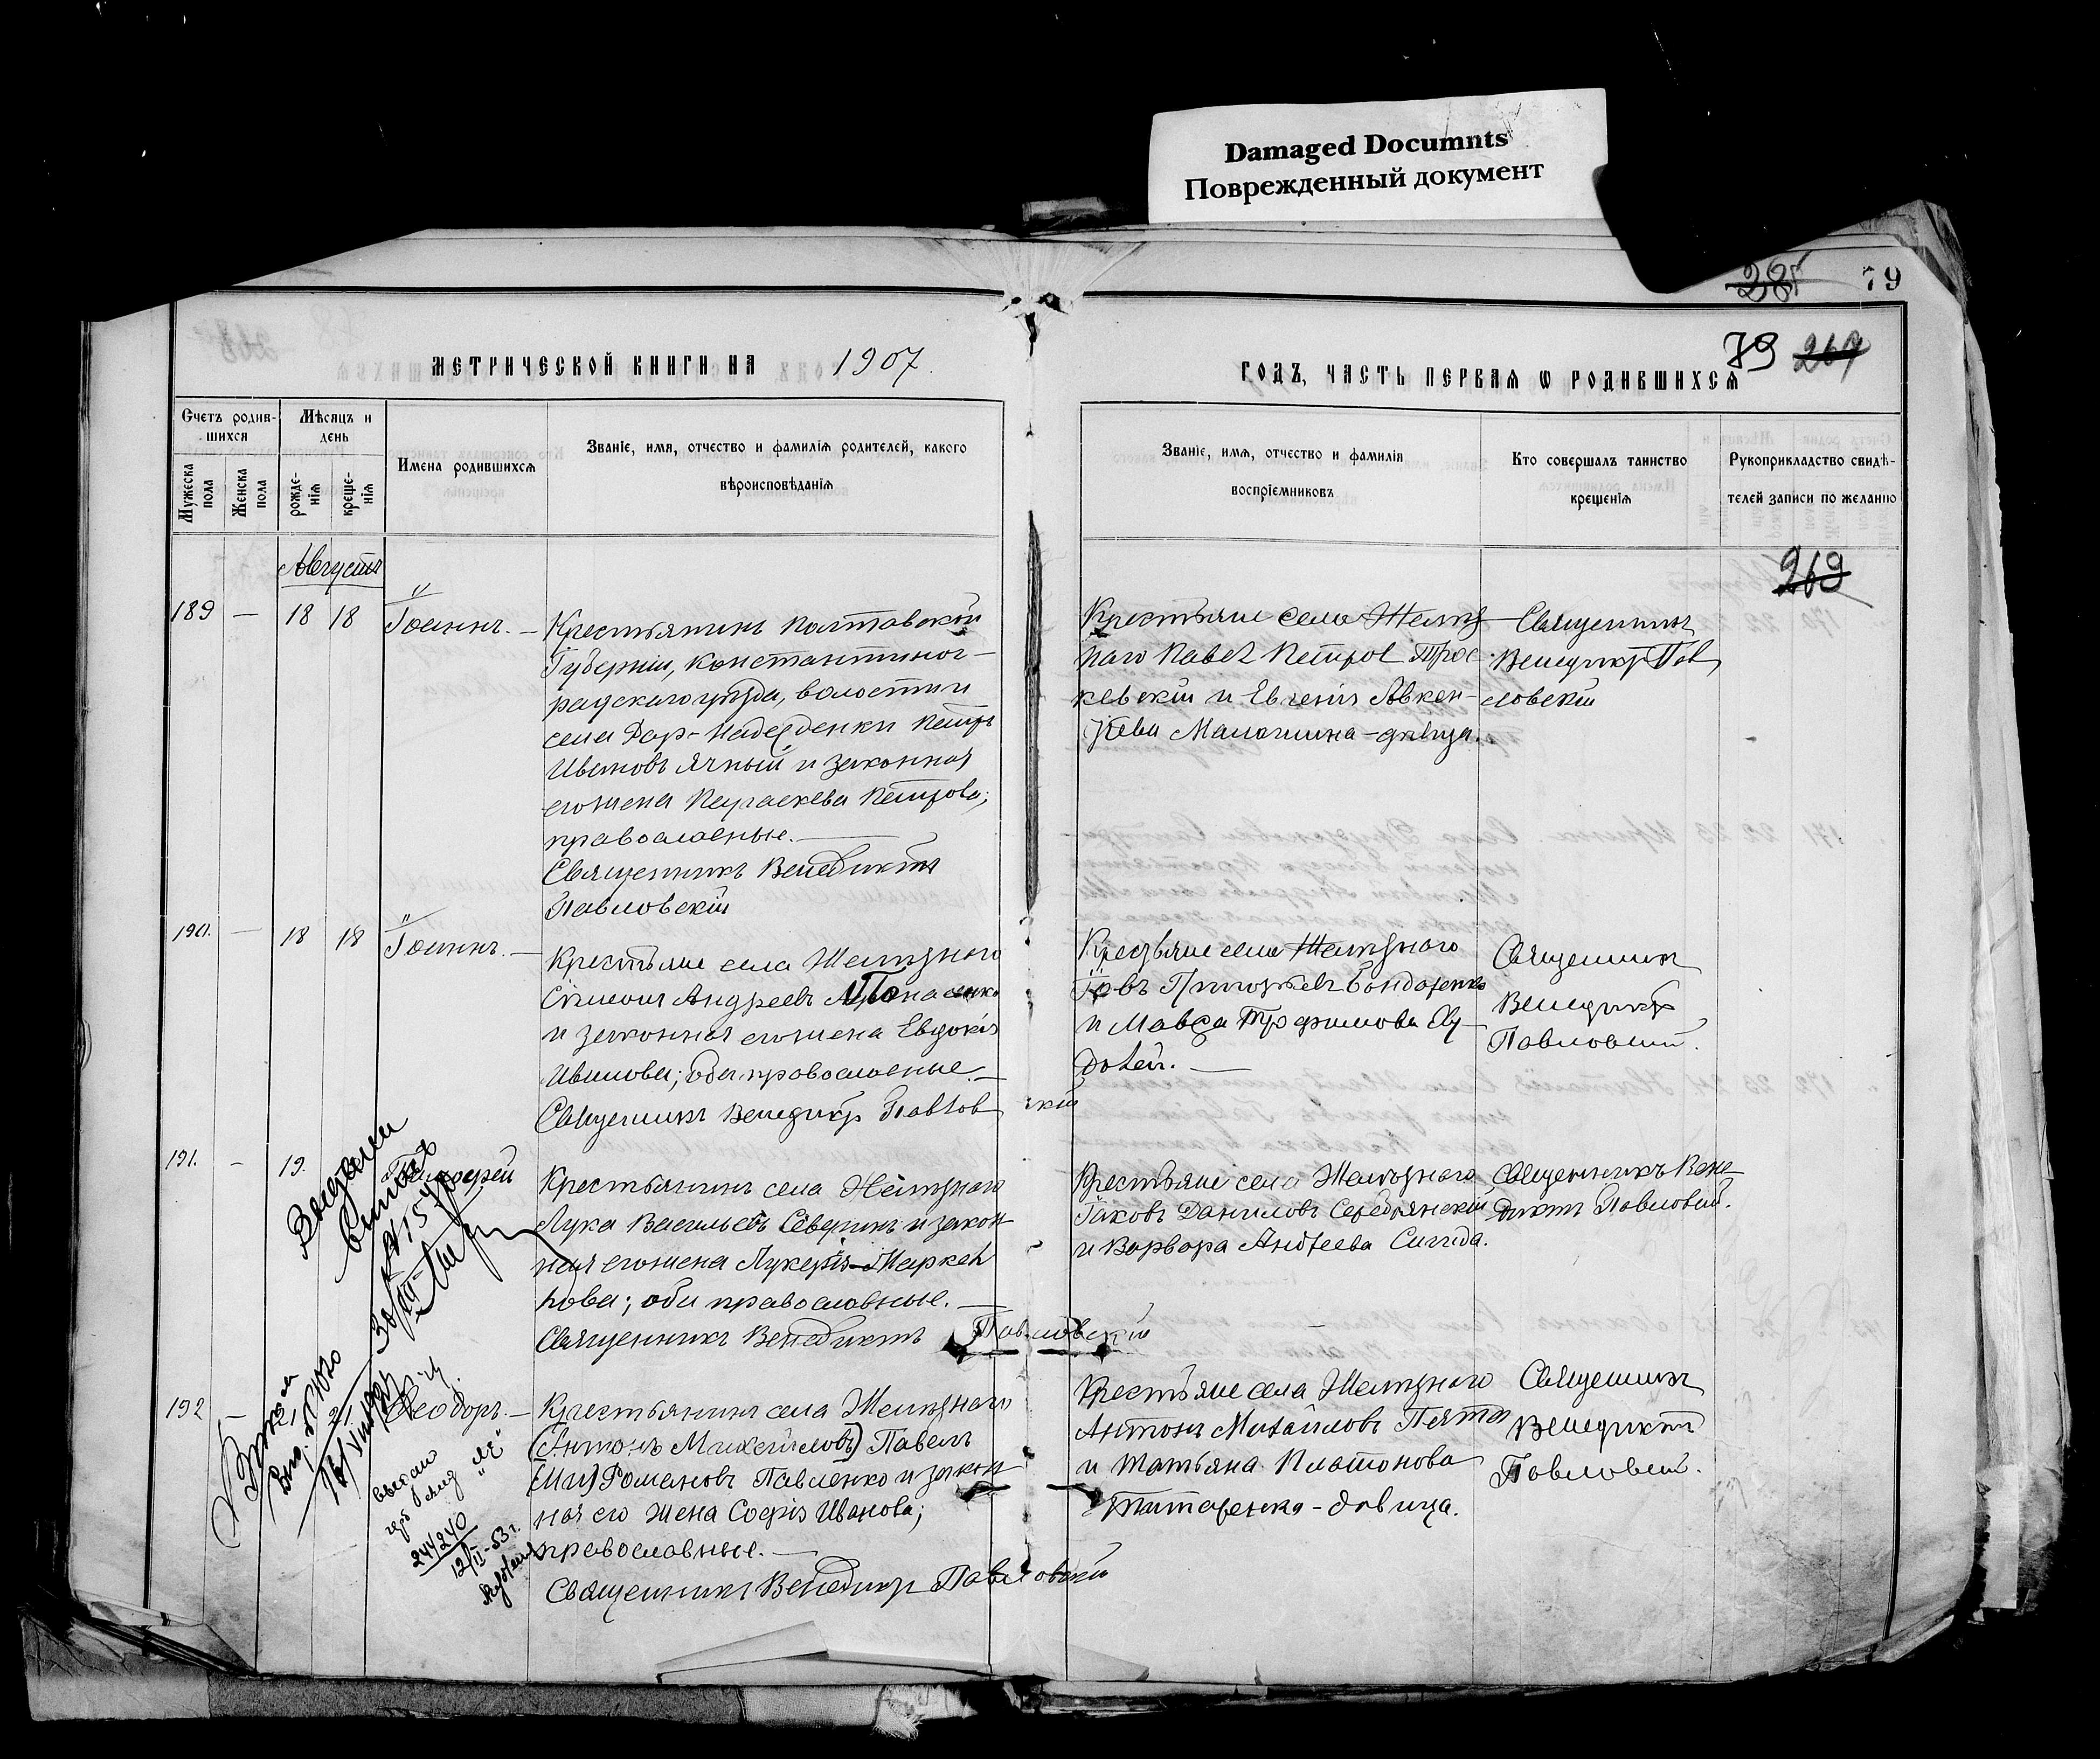 Damaged Documnts
Поврежденный документ
281 79
79 267
МЕТРИЧЕСКОЙ КНИГИ НА 1907.
ГОДЪ, ЧАСТЬ ПЕРВАЯ Ѡ РОДИВШИХСЯ
Счетъ родив-
шихся
Мѣсяцъ и
день
Мужеска
пола
Женска
пола
рожде-
нія
креще-
нія
Имена родившихся
Званіе, имя, отчество и фамилія родителей, какого
вѣроисповѣданія
Званіе, имя, отчество и фамилія
воспріемниковъ
Кто совершалъ таинство
крещенія
Рукоприкладство свидѣ-
телей записи по желанію
269
Августъ
189 — 18 18 Іоаннъ. —
Крестьянинъ Полтавской
Губерніи, Константиног-
радскаго уѣзда, волости и
села Дар-Надежденки Петръ
Ивановъ Ячный и законная
его жена Параскева Петрова;
православные. —
Священникъ Венедиктъ
Павловскій
Крестьяне села Желѣз
наго Павел Петров
и Евгенія
девица.
Священникъ
Венедиктъ Пав
ловскій
190. — 18 18 Іоаннъ. —
Крестьяне села Желѣзнаго
Сѵмеонъ Андреевъ
и законная его жена Евдокія
Иванова; оба православные. —
Священникъ Венедиктъ Павловскій
Крестьяне села Желѣзнаго
Іовъ Григорьевъ Бондаренко
и Мавра Трофимова
Священникъ
Венедиктъ
Павловскій.
191. — 19.
Крестьянинъ села Желѣзнаго
Лука Васильевъ Северинъ и закон
ная его жена Лукерія
нова; оба православные. —
Священникъ Венедиктъ Павловскій
Крестьяне села Желѣзнаго
Іаковъ Даниловъ Серебрянскій
и Варвара Андреева Сигида.
Священникъ Вене-
диктъ Павловскій.
192 — 21 21. Ѳеодоръ. —
Крестьянинъ села Желѣзнаго
(Антонъ Михайловъ) Павелъ
Романовъ Павленко и закон
ная его жена Софія Иванова;
православные. —
Священникъ Венедиктъ Павловскій
Крестьяне села Желѣзнаго
Антонъ Михайловъ
и Татьяна Платонова
Титаренко - девица.
Священникъ
Венедиктъ
Павловскій.
244240
12/II-53 г.